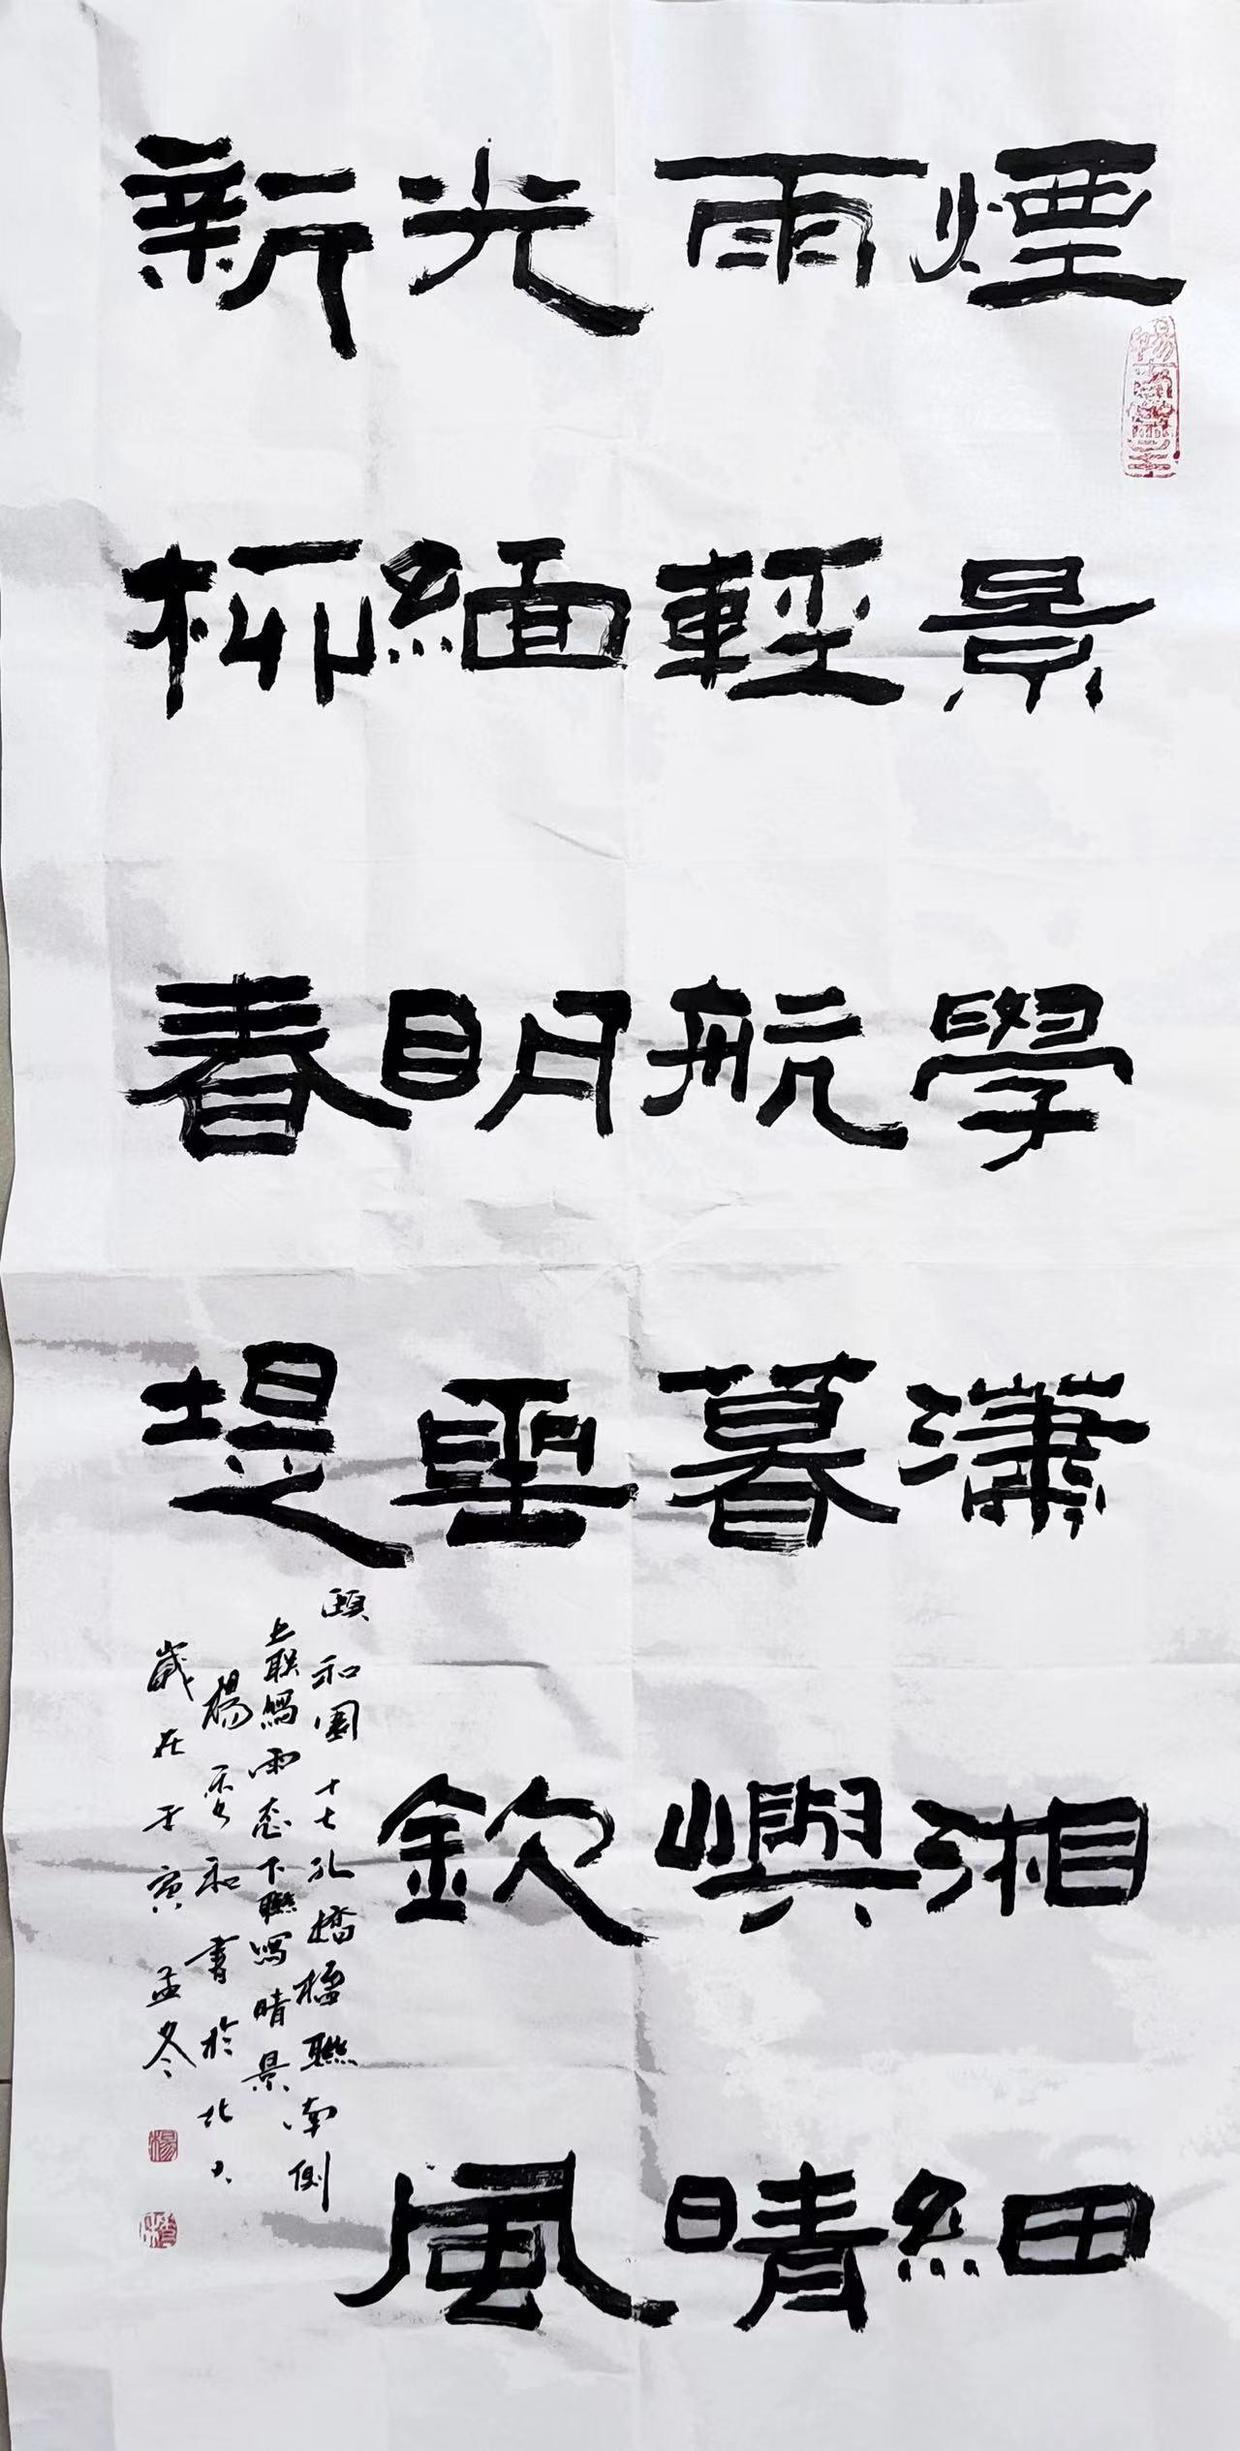 煙景學瀟湘細
雨輕航暮嶼晴
光緬明聖欽風
新柳春堤
頤和園十七孔橋楹聯南側
上联寫雨态下聯寫晴景
楊和書於北大
歲在壬寅孟冬
楊